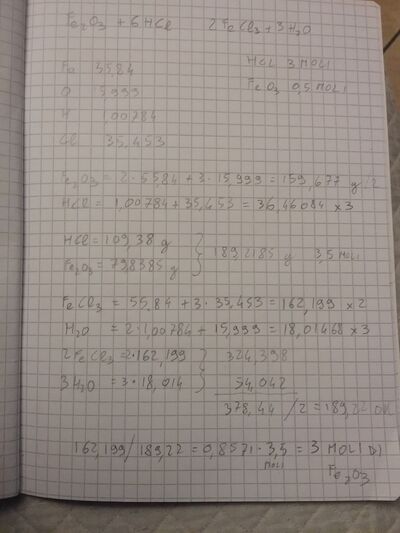 Fe2O3 + 6HCl 2FeCl3 + 3H2O
HCL 3 MOLI
Fe 55,84
FeO3 0,5 MOLI
O 15,999
H 1,00784
Cl 35,453
Fe2O3 = 2·55,84 + 3·15,999 = 159,677 g/2
HCl = 1,00784 + 35,453 = 36,46084 x3
HCl = 109,38 g
189,2185 g 3,5 MOLI
Fe2O3 = 79,8385 g
FeCl3 = 55,84 + 3·35,453 = 162,199 x2
H2O = 2·1,00784 + 15,999 = 18,01468 x3
2FeCl3 = 2·162,199 324,398
3H2O = 3·18,014 54,042
378,44 /2 = 189,22 OK
162,199/189,22 = 0,8571·3,5 = 3 MOLI DI
MOLI
Fe2O3